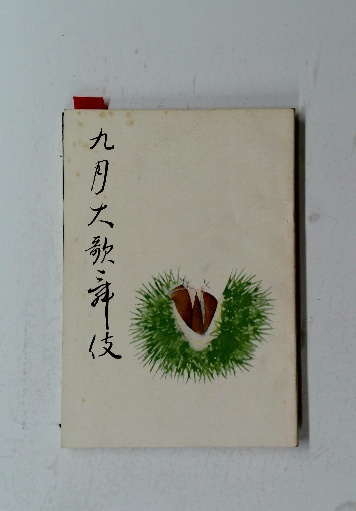 九月大歌舞伎